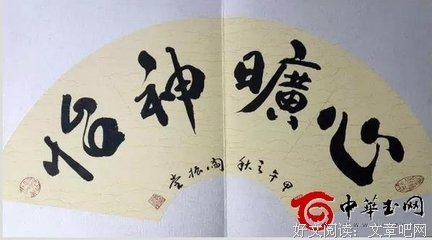 心曠神怡
甲午之秋 振堂
中華书网
好文阅读：文章吧网